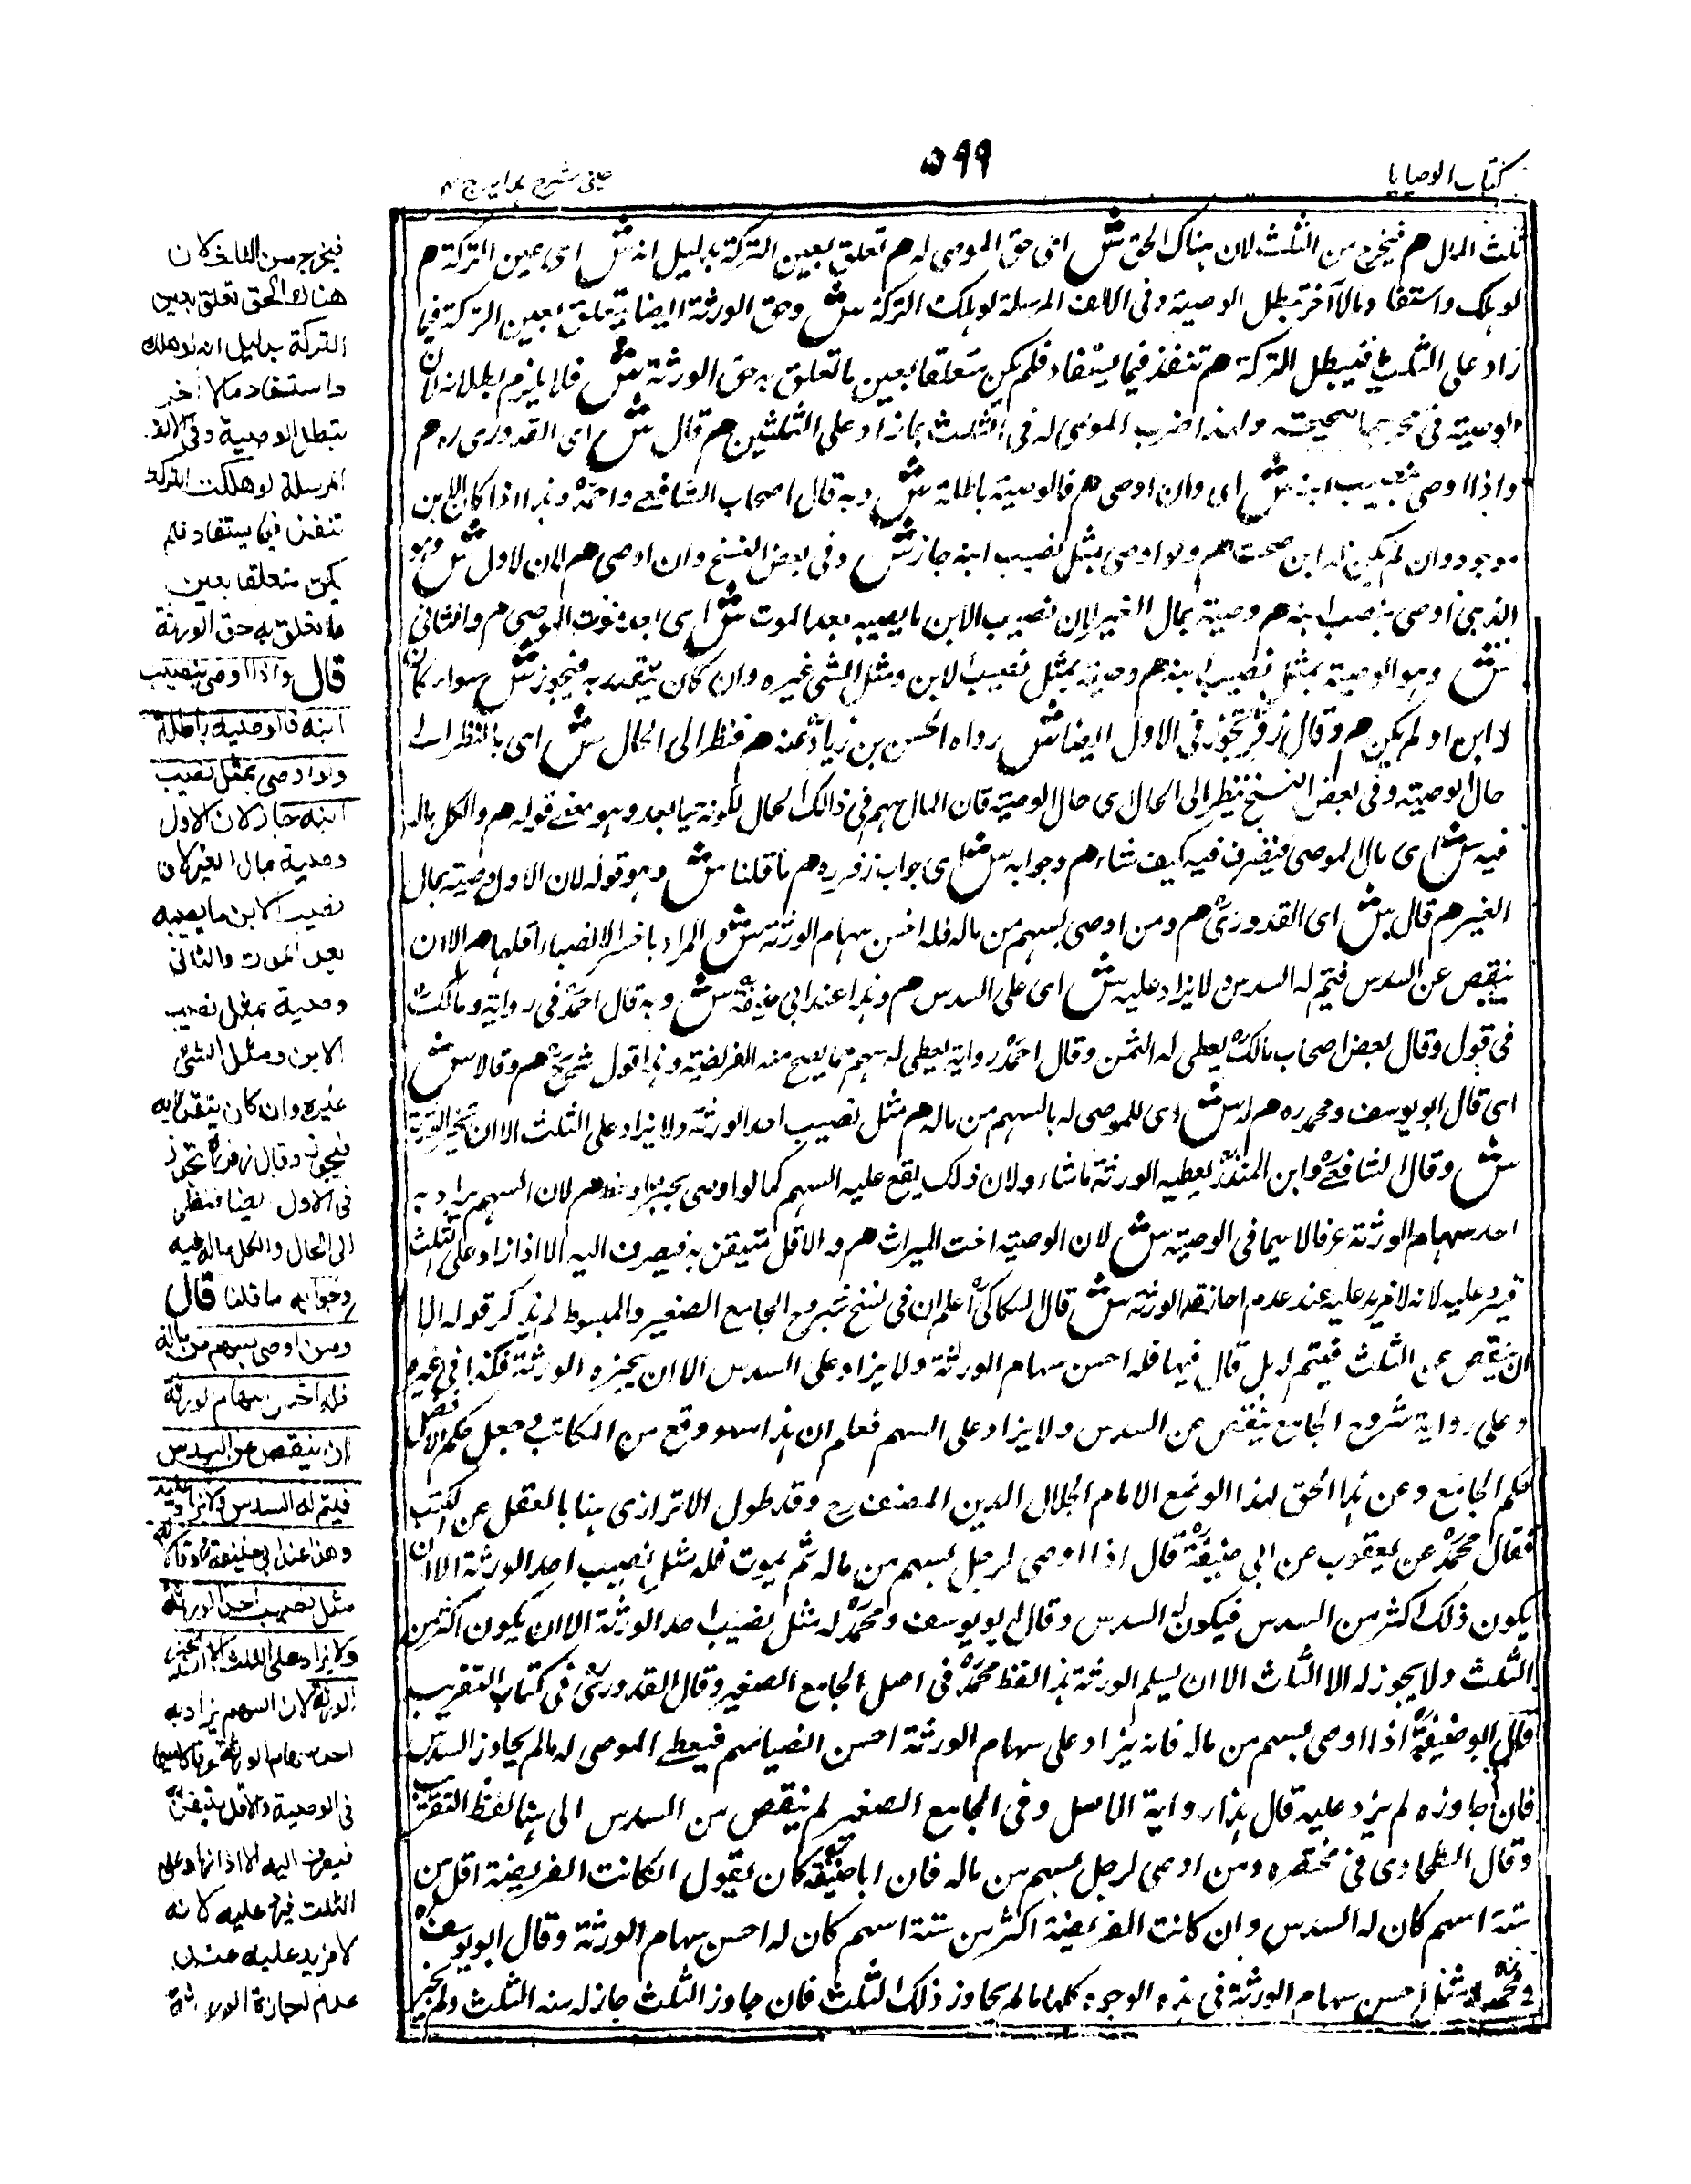 كتاب الوصايا
٥٩٩
عينى شرح هدايه ج ٤
ثلث المال هم فيخرج من الثلث لان هناك الحق ش اى حق الموصى له هم تعلق بعين التركة بدليل انه ش اى عين التركة هم
لو هلك واستفاد مالا آخر تبطل الوصية وفى الالف المرسلة لو هلكت التركة ش وحق الورثة ايضا يتعلق بعين التركة فيما
زاد على الثلث فيبطل التركة هم تنفذ فيما يستفاد فلم يكن متعلقا بعين ما تعلق به حق الورثة ش فلا يلزم بطلانه لان
الوصية فى مخرجها صحيحة ولهذا ضرب الموصى له فى الثلث بما زاد على الثلثين هم قال ش اى القدورى ره هم
واذا اوصى بنصيب ابنه ش اى وان اوصى هم فالوصية باطلة ش وبه قال اصحاب الشافعے واحمد وهذا اذا كان الابن
موجود وان لم يكن له ابن صحت هم ولو اوصى بمثل نصيب ابنه جاز ش وفى بعض النسخ وان اوصى هم لان الاول ش وهو
الذى اوصى بنصيب ابنه هم وصية بمال الغير لان نصيب الابن ما يصيبه بعد الموت ش اى بعد موت الموصى هم والثانى
ش وهو الوصية بمثل نصيب ابنه هم وصية بمثل نصيب الابن ومثل الشئ غيره وان كان يتقدر به فيجوز ش سواء كان
لا ابن او لم يكن هم وقال زفر يجوز فى الاول ايضا ش رواه الحسن بن زياد عنه هم فنظر الى الحال ش اى بالنظر الے
حال الوصية وفى بعض النسخ نظر الى الحال اى حال الوصية فان المال هم فى ذالك الحال لكونه حيا بعد وهو معنے قوله هم والكل ماله
فيه ش اى مال الموصى فيتصرف فيه كيف شاء هم وجوابه ش اى جواب زفر ره هم ما قلنا ش وهو قوله لان الاول وصية بمال
الغير هم قال ش اى القدورى هم ومن اوصى بسهم من ماله فله اخس سهام الورثة ش والمراد باخس الانصباء اقلها هم الا ان
ينقص عن السدس فيتم له السدس ولا يزاد عليه ش اى على السدس هم وهذا عند ابى حنيفة ش وبه قال احمد فى رواية ومالك
فى قول وقال بعض اصحاب مالك يعطى له الثمن وقال احمد رواية يعطى له سهم مما يصح منه الفريضة وهذا قول شريح هم وقالا ش
اى قال ابو يوسف ومحمد ره هم له ش اى للموصى له بالسهم من ماله هم مثل نصيب احد الورثة ولا يزاد على الثلث الا ان يجيز الورثة
ش وقال الشافعے وابن المنذر يعطيه الورثة ما شاء ولان ذلك يقع عليه السهم كما لو اوصى بجزء هم لان السهم يراد به
احد سهام الورثة عرفا لا سيما فى الوصية ش لان الوصية اخت الميراث هم والاقل متيقن به فيصرف اليه الا اذا زاد على الثلث
فيرد عليه لانه لا مزيد عليه عند عدم اجازة الورثة ش قال السكاكى اعلم ان فى نسخ شروح الجامع الصغير والمبسوط لم يذكر قوله الا
ان ينقص عن الثلث فيتم له بل قال فيها فله احسن سهام الورثة ولا يزاد على السدس الا ان يجيزه الورثة فكذا فى غيره
وعلى رواية شروح الجامع ينقص عن السدس ولا يزاد على السهم فعلم ان هذا سهو وقع من المكاتب وجعل حكم الاصل
حكم الجامع وعن هذا الحق لهذا الوضع الامام الجلال الدين المصنف رح وقد طول الاترازى هنا بالعقل عن الكتب
فقال محمد عن يعقوب عن ابى حنيفة قال اذا اوصى لرجل بسهم من ماله ثم يموت فله مثل نصيب احد الورثة الا ان
يكون ذلك اكثر من السدس فيكون له السدس وقال ابو يوسف ومحمد له مثل نصيب احد الورثة الا ان يكون اكثر من
الثلث ولا يجوز له الا الثلث الا ان يسلم الورثة هذا لفظ محمد فى اصل الجامع الصغير وقال القدورى فى كتاب التقريب
قال ابو حنيفة اذا اوصى بسهم من ماله فانه يزاد على سهام الورثة احسن انصبائهم فيعطے الموصى له مالم يجاوز السدس
فان جاوزه لم يزد عليه قال هذا رواية الاصل وفى الجامع الصغير لم ينقص من السدس الى هنا لفظ التقريب
وقال الطحاوى فى مختصره ومن اوصى لرجل بسهم من ماله فان ابا حنيفة كان يقول ان كانت الفريضة اقل من
ستة اسهم كان له السدس وان كانت الفريضة اكثر من ستة اسهم كان له احسن سهام الورثة وقال ابو يوسف
ومحمد له مثل احسن سهام الورثة فى هذه الوجوه كلها مالم يجاوز ذلك الثلث فان جاوز الثلث جاز له منه الثلث ولم يجز
فيخرج من الثلث لان
هناك الحق تعلق بعين
التركة بدليل انه لو هلك
واستفاد مالا آخر
تبطل الوصية وفى الالف
المرسلة لو هلكت التركة
تنفذ فيما يستفاد فلم
يكن متعلقا بعين
ما تعلق به حق الورثة
قال واذا اوصى بنصيب
ابنه فالوصية باطلة
ولو اوصى بمثل نصيب
ابنه جاز لان الاول
وصية بمال الغير لان
نصيب الابن ما يصيبه
بعد الموت والثانى
وصية بمثل نصيب
الابن ومثل الشئ
غيره وان كان يتقدر به
فيجوز وقال زفر ره يجوز
فى الاول ايضا فنظر
الى الحال والكل ماله فيه
وجوابه ما قلنا قال
ومن اوصى بسهم من ماله
فله اخس سهام الورثة
ان ينقص عن السدس
فيتم له السدس ولا يزاد عليه
وهذا عند ابى حنيفة ره وقالا له
مثل نصيب احد الورثة
ولا يزاد على الثلث الا ان يجيز
الورثة لان السهم يراد به
احد سهام الورثة عرفا لا سيما
فى الوصية والاقل متيقن به
فيصرف اليه الا اذا زاد على
الثلث فيرد عليه لانه
لا مزيد عليه عند
عدم اجازة الورثة